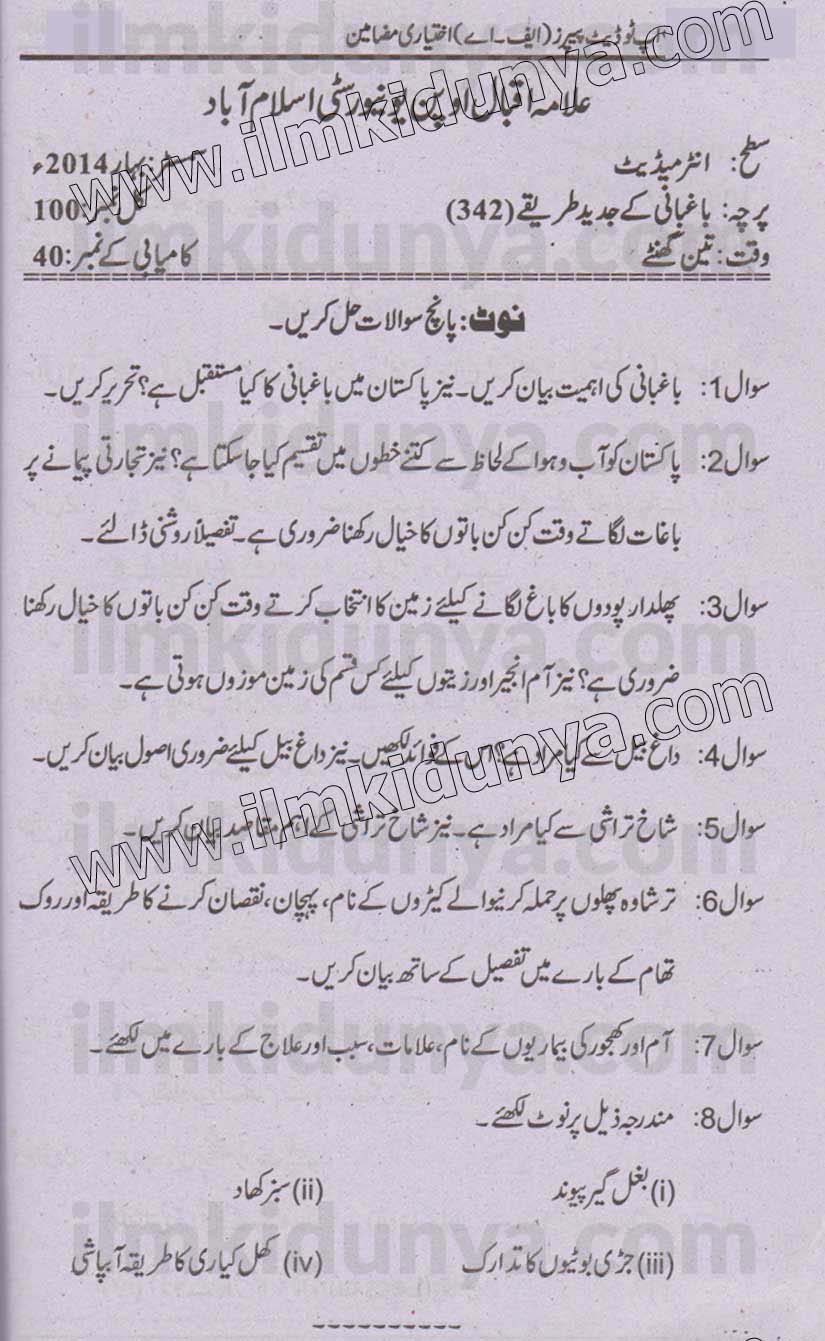 اپ ٹو ڈیٹ پیپرز (ایف۔اے) اختیاری مضامین
علامہ اقبال اوپن یونیورسٹی اسلام آباد
سطح: انٹرمیڈیٹ سمسٹر: بہار 2014ء
پرچہ: باغبانی کے جدید طریقے (342) کل نمبر: 100
وقت: تین گھنٹے کامیابی کے نمبر: 40
نوٹ: پانچ سوالات حل کریں۔
سوال 1: باغبانی کی اہمیت بیان کریں۔ نیز پاکستان میں باغبانی کا کیا مستقبل ہے؟ تحریر کریں۔
سوال 2: پاکستان کو آب و ہوا کے لحاظ سے کتنے خطوں میں تقسیم کیا جاسکتا ہے؟ نیز تجارتی پیمانے پر
باغات لگاتے وقت کن کن باتوں کا خیال رکھنا ضروری ہے۔ تفصیلاً روشنی ڈالئے۔
سوال 3: پھلدار پودوں کا باغ لگانے کیلئے زمین کا انتخاب کرتے وقت کن کن باتوں کا خیال رکھنا
ضروری ہے؟ نیز آم انجیر اور زیتوں کیلئے کس قسم کی زمین موزوں ہوتی ہے۔
سوال 4: داغ بیل سے کیا مراد ہے؟ اس کے فوائد لکھیں۔ نیز داغ بیل کیلئے ضروری اصول بیان کریں۔
سوال 5: شاخ تراشی سے کیا مراد ہے۔ نیز شاخ تراشی کے اہم مقاصد بیان کریں۔
سوال 6: ترشاوہ پھلوں پر حملہ کرنیوالے کیڑوں کے نام، پہچان، نقصان کرنے کا طریقہ اور روک
تھام کے بارے میں تفصیل کے ساتھ بیان کریں۔
سوال 7: آم اور کھجور کی بیماریوں کے نام، علامات، سبب اور علاج کے بارے میں لکھئے۔
سوال 8: مندرجہ ذیل پر نوٹ لکھئے۔
(i) بغل گیر پیوند (ii) سبز کھاد
(iii) جڑی بوٹیوں کا تدارک (iv) کھل کیاری کا طریقہ آبپاشی
www.ilmkidunya.com
www.ilmkidunya.com
ilmkidunya.com
ilmkidunya.com
ilmkidunya.com
ilmkidunya.com
ilmkidunya.com
ilmkidunya.com
ilmkidunya.com